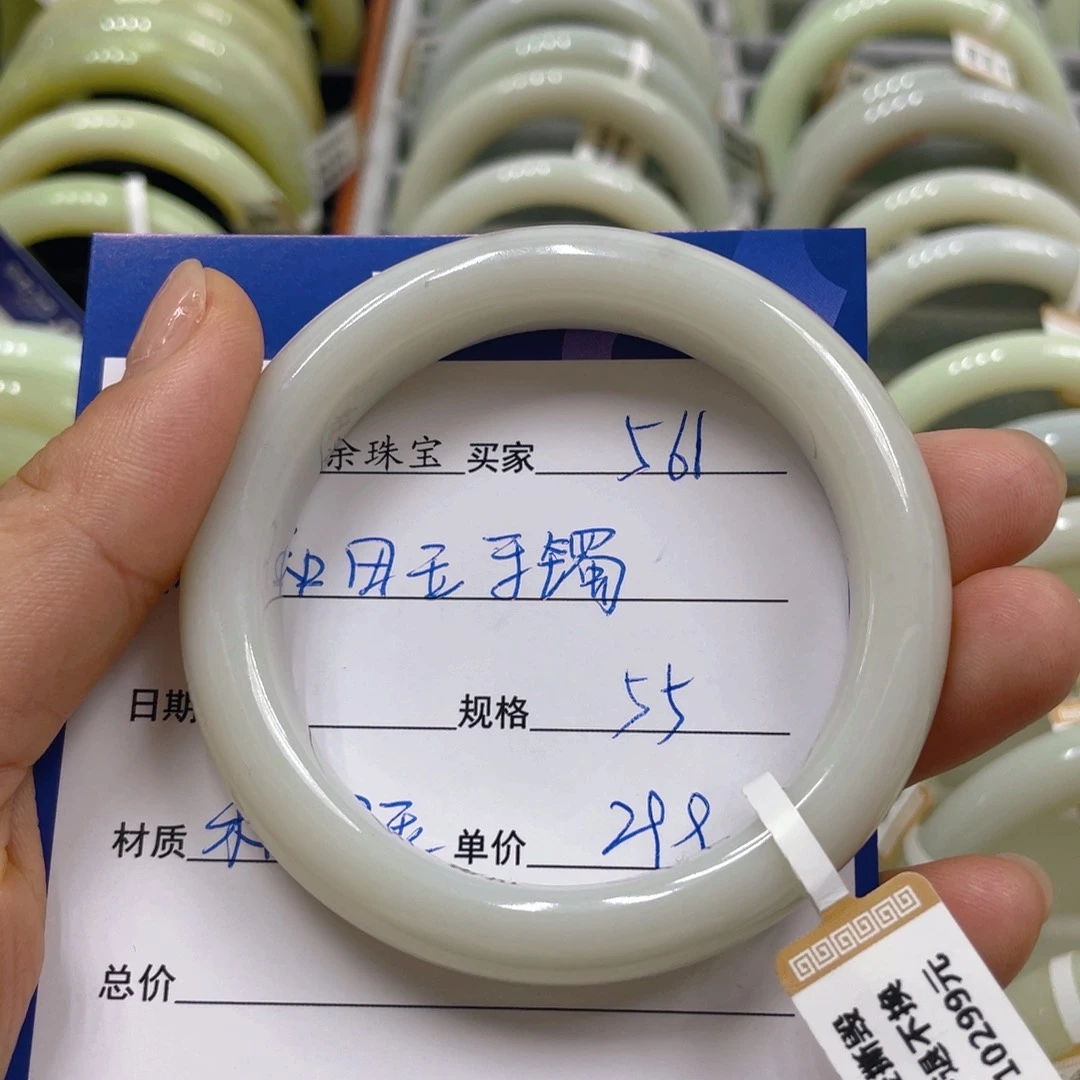 余珠宝 买家 561
和田玉手镯
日期 规格 55
材质 和 玉 单价 298
总价
撕毁
退不换
10299元